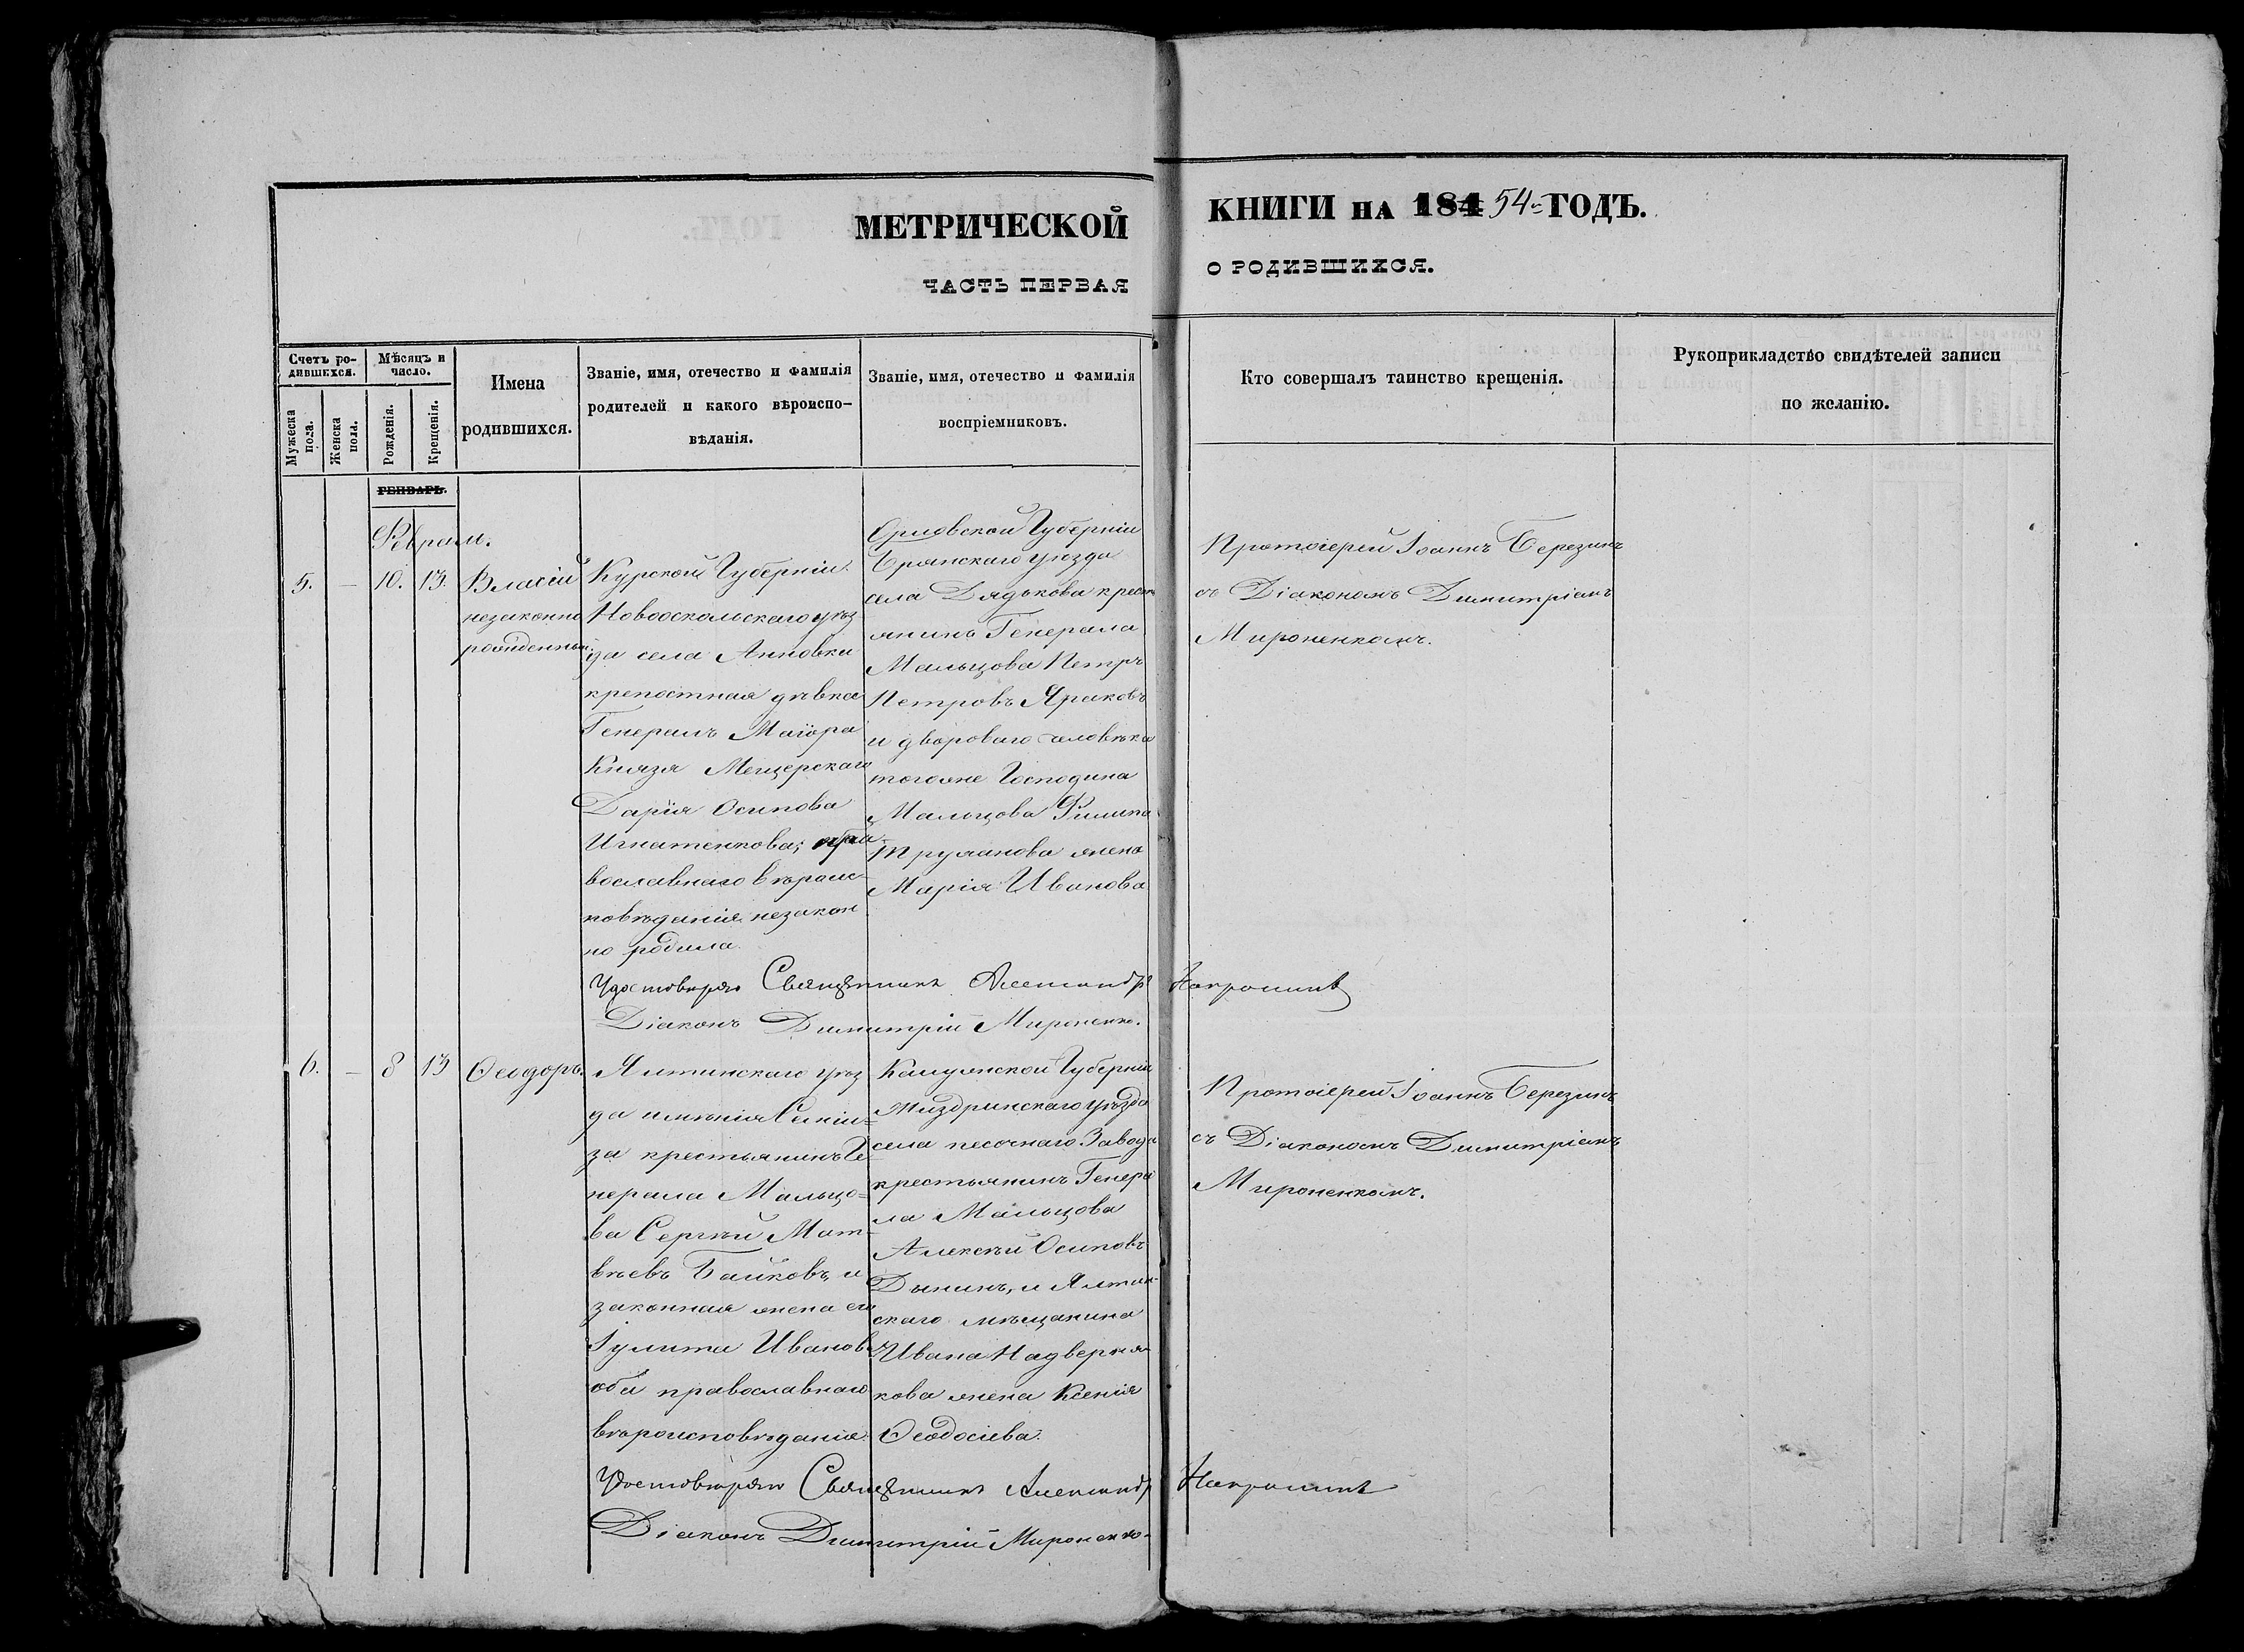 МЕТРИЧЕСКОЙ
ЧАСТЬ ПЕРВАЯ
КНИГИ НА 184 54 ГОДЪ.
О РОДИВШИХСЯ.
Счетъ ро-
дившихся.
Мужеска
пола.
Женска
пола.
Мѣсяцъ и
число.
Рожденія.
Крещенія.
Имена
родившихся.
Званіе, имя, отечество и фамилія
родителей и какого вѣроиспо-
вѣданія.
Званіе, имя, отечество и фамилія
воспріемниковъ.
Кто совершалъ таинство крещенія.
Рукоприкладство свидѣтелей записи
по желанію.
ГЕНВАРЬ.
Феврал.
5.
—
10.
13.
Власій
незаконно
рожденный
Курской Губерніи
Новооскольскаго уѣз
да села Анновки
крепостная дѣвка
Генералъ Маіора
Князя Мещерскаго
Дарія Осипова
Игнатенкова; пра
вославнаго вѣроис-
повѣданія незакон
но родила
Орловской Губерніи
Брянскаго уѣзда
села Дядькова кресть
янинъ Генерала
Мальцова Петръ
Петровъ Яраковъ
и двороваго человѣка
тогоже Господина
Мальцова Филипа
Труханова жена
Марія Иванова
Протоіерей Іоаннъ Березинъ
съ Діакономъ Димитріемъ
Мироненкомъ.
Удостовѣряю Священникъ Александръ
Діаконъ Димитрій Мироненко.
6.
—
8
13
Ѳеодоръ.
Ялтинскаго уѣз
да имѣнія Симіи-
за крестьянинъ Ге
нерала Мальцо-
ва Сергѣй Мат-
вѣевъ Байковъ, и
законная жена его
Іулита Иванов
оба православнаго
вѣроисповѣданія
Калужской Губерніи
Жиздринскаго уѣзда
села песочнаго Завода
крестьянинъ Генера
ла Мальцова
Алексѣй Осиповъ
Дынинъ, и Ялтин-
скаго мѣщанина
Ивана Надверня-
кова жена Ксенія
Ѳеодосіева.
Протоіерей Іоаннъ Березинъ
съ Діакономъ Димитріемъ
Мироненкомъ.
Удостовѣряю Священникъ Александръ
Діаконъ Димитрій Мироненко